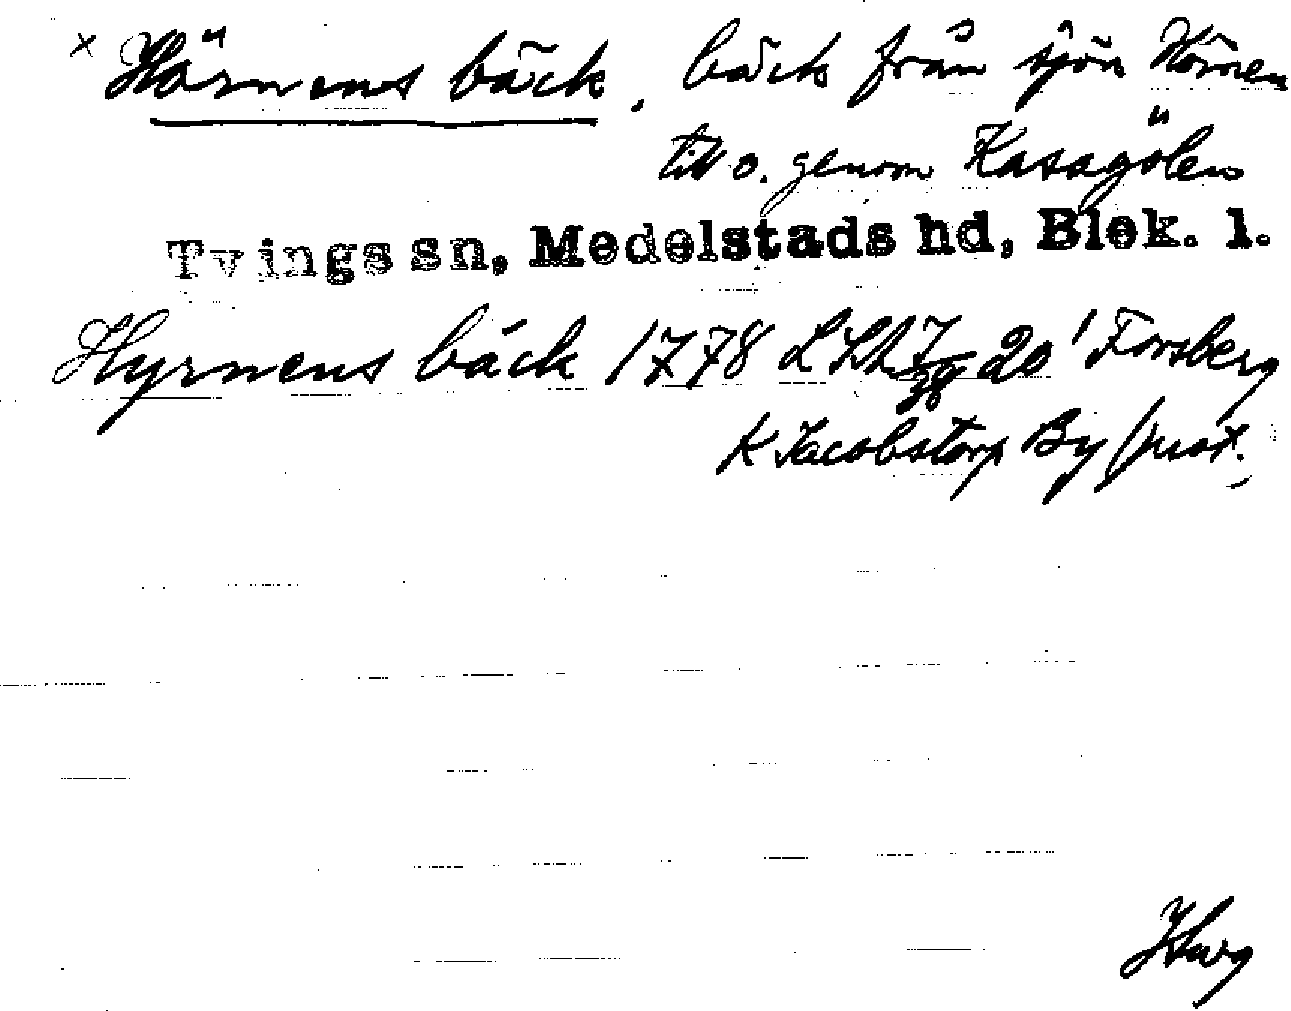 x Hörnens bäck, bäck från sjön Hörnen
till o. genom Kasagölen
Tvings sn, Medelstads hd, Blek. l.
Hyrnens bäck 1778 20' Forsberg
K Jacobstorp By prot.